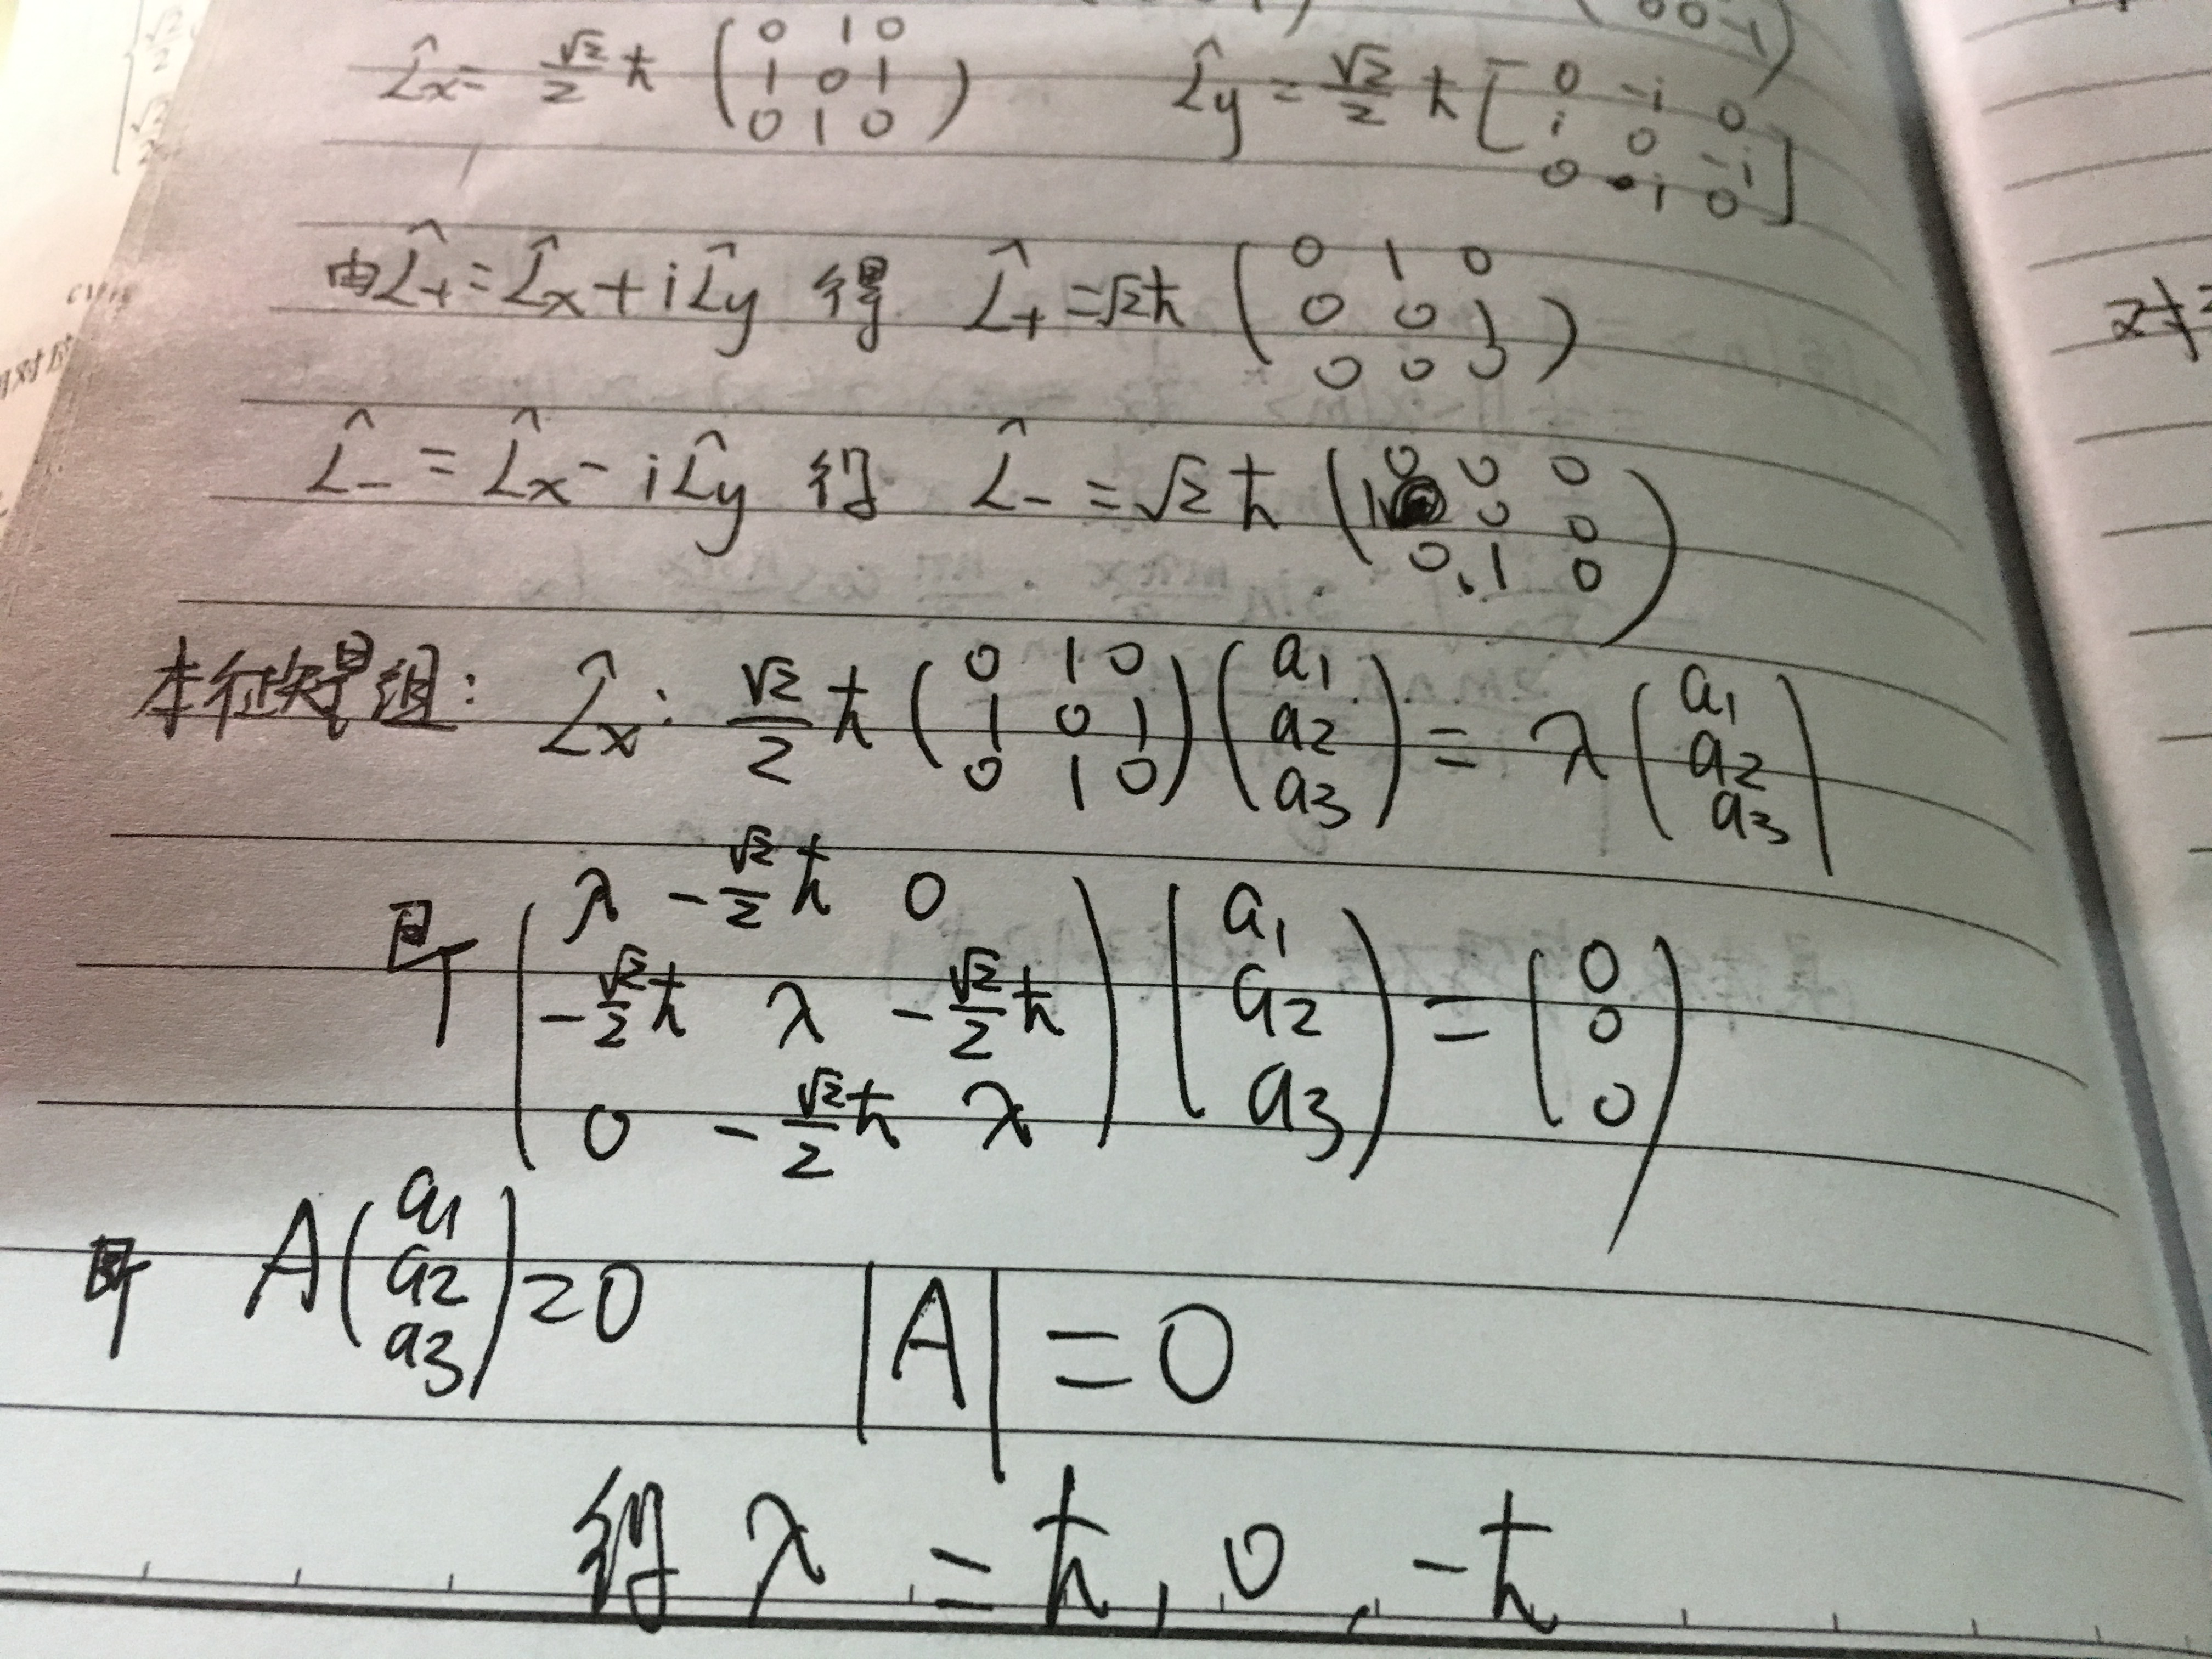 0 0 -1
L̂x = √2/2 ħ (0 1 0 / 1 0 1 / 0 1 0) L̂y = √2/2 ħ [0 -i 0 / i 0 -i / 0 i 0]
由L̂+ = L̂x + iL̂y 得 L̂+ = √2ħ (0 1 0 / 0 0 1 / 0 0 0)
L̂- = L̂x - iL̂y 得 L̂- = √2 ħ (0 0 0 / 1 0 0 / 0 1 0)
本征矢量组: L̂x: √2/2 ħ (0 1 0 / 1 0 1 / 0 1 0) (a1 / a2 / a3) = λ (a1 / a2 / a3)
即 (λ -√2/2 ħ 0 / -√2/2 ħ λ -√2/2 ħ / 0 -√2/2 ħ λ) (a1 / a2 / a3) = (0 / 0 / 0)
即 A (a1 / a2 / a3) = 0 |A| = 0
得 λ = ħ, 0, -ħ
对